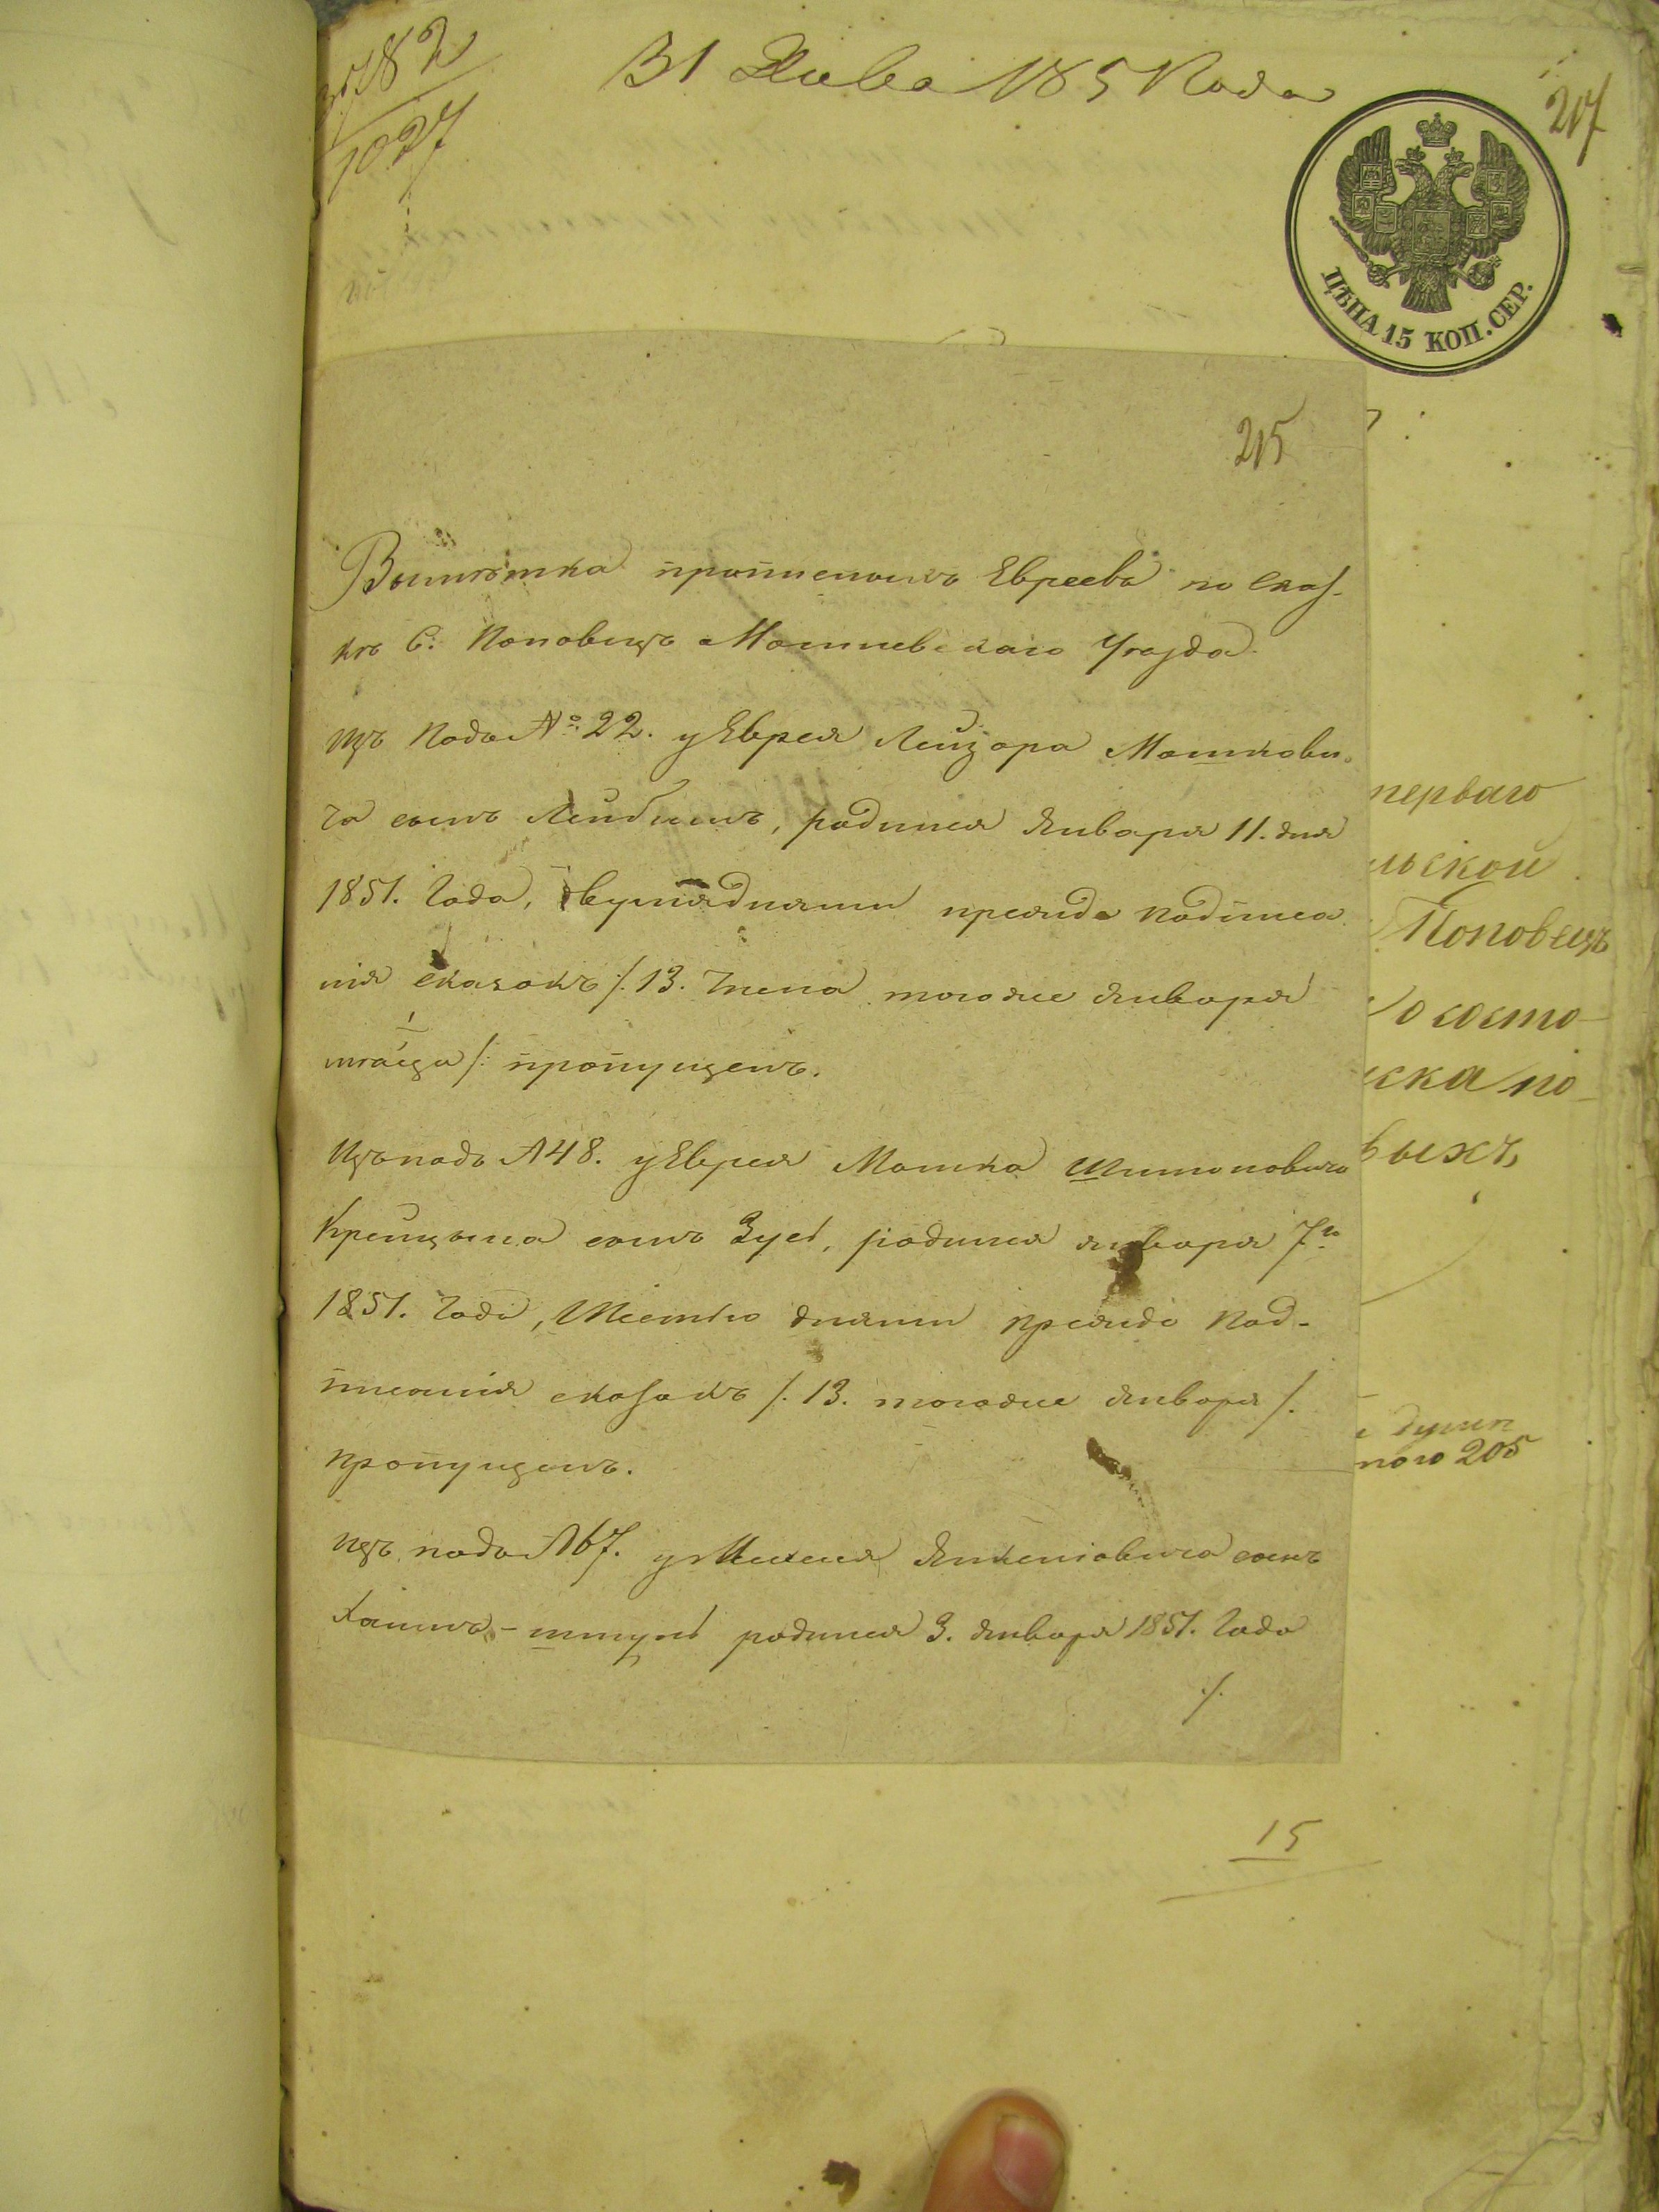 №182
1027
31 Янва 1851 Года
207
ЦѢНА 15 КОП. СЕР.
215
Выметка прописныхъ Евреевъ по Сказ-
кѣ С: Поповецъ Могилевскаго Уѣзда
Изъ подъ № 22. у Еврея Лейзора Мошкови-
ча сынъ Лейбишъ, родился Января 11. дня
1851. Года, двумя днями прежде подписа
нія сказокъ /. 13. Числа тогоже января
мѣсяца /. пропущенъ.
Изъ подъ № 48. у Еврея Мошка Шимоновича
Крейцмана сынъ Зусь, родился января 7го
1851. Года, Шестью днями прежде под-
писанія сказокъ /. 13. тогоже января /.
пропущенъ.
Изъ подъ № 67. у Михеля Янкеліовича сынъ
Хаимъ - родился 3. января 1851. Года
./.
перваго
льской
Поповецъ
о состо-
по-
выхъ
205
15